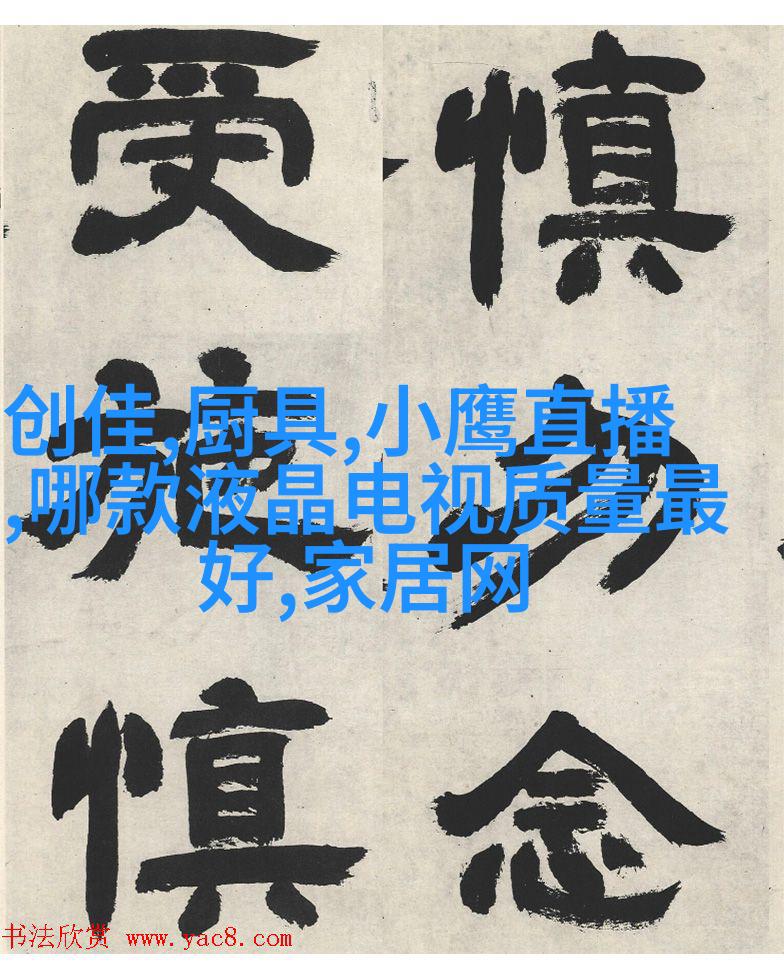 慎勿念
受施慎
创佳,厨具,小鹰直播
,哪款液晶电视质量最
好,家居网
书法欣赏 www.yac8.com